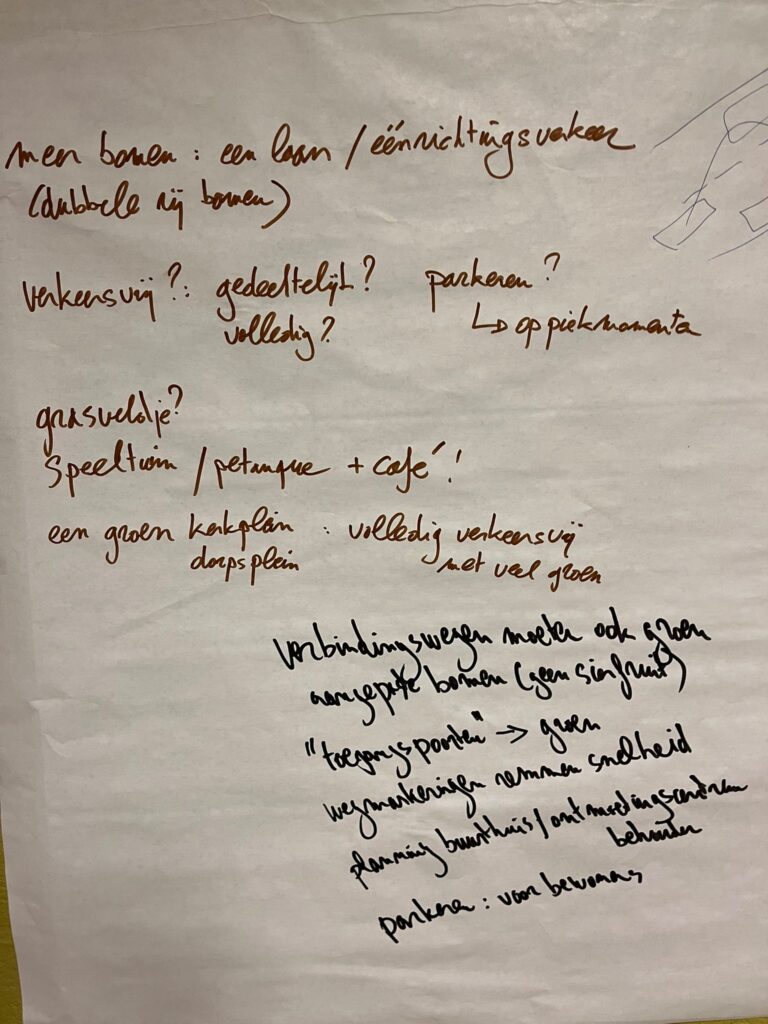 meer bomen : een laan / éénrichtingsverkeer
(dubbele rij bomen)
verkeersvrij ? : gedeeltelijk ? parkeren ?
volledig ? ↳ op piekmomenten
grasveldje ?
speeltuin / petanque + café !
een groen kerkplein : volledig verkeersvrij
dorpsplein met veel groen
verbindingswegen moeten ook groen
aangepaste bomen (geen sierfruit)
"toegangspoorten" → groen
wegmarkeringen remmen snelheid
planning buurthuis / ontmoetingscentrum
behouden
parkeren : voor bewoners